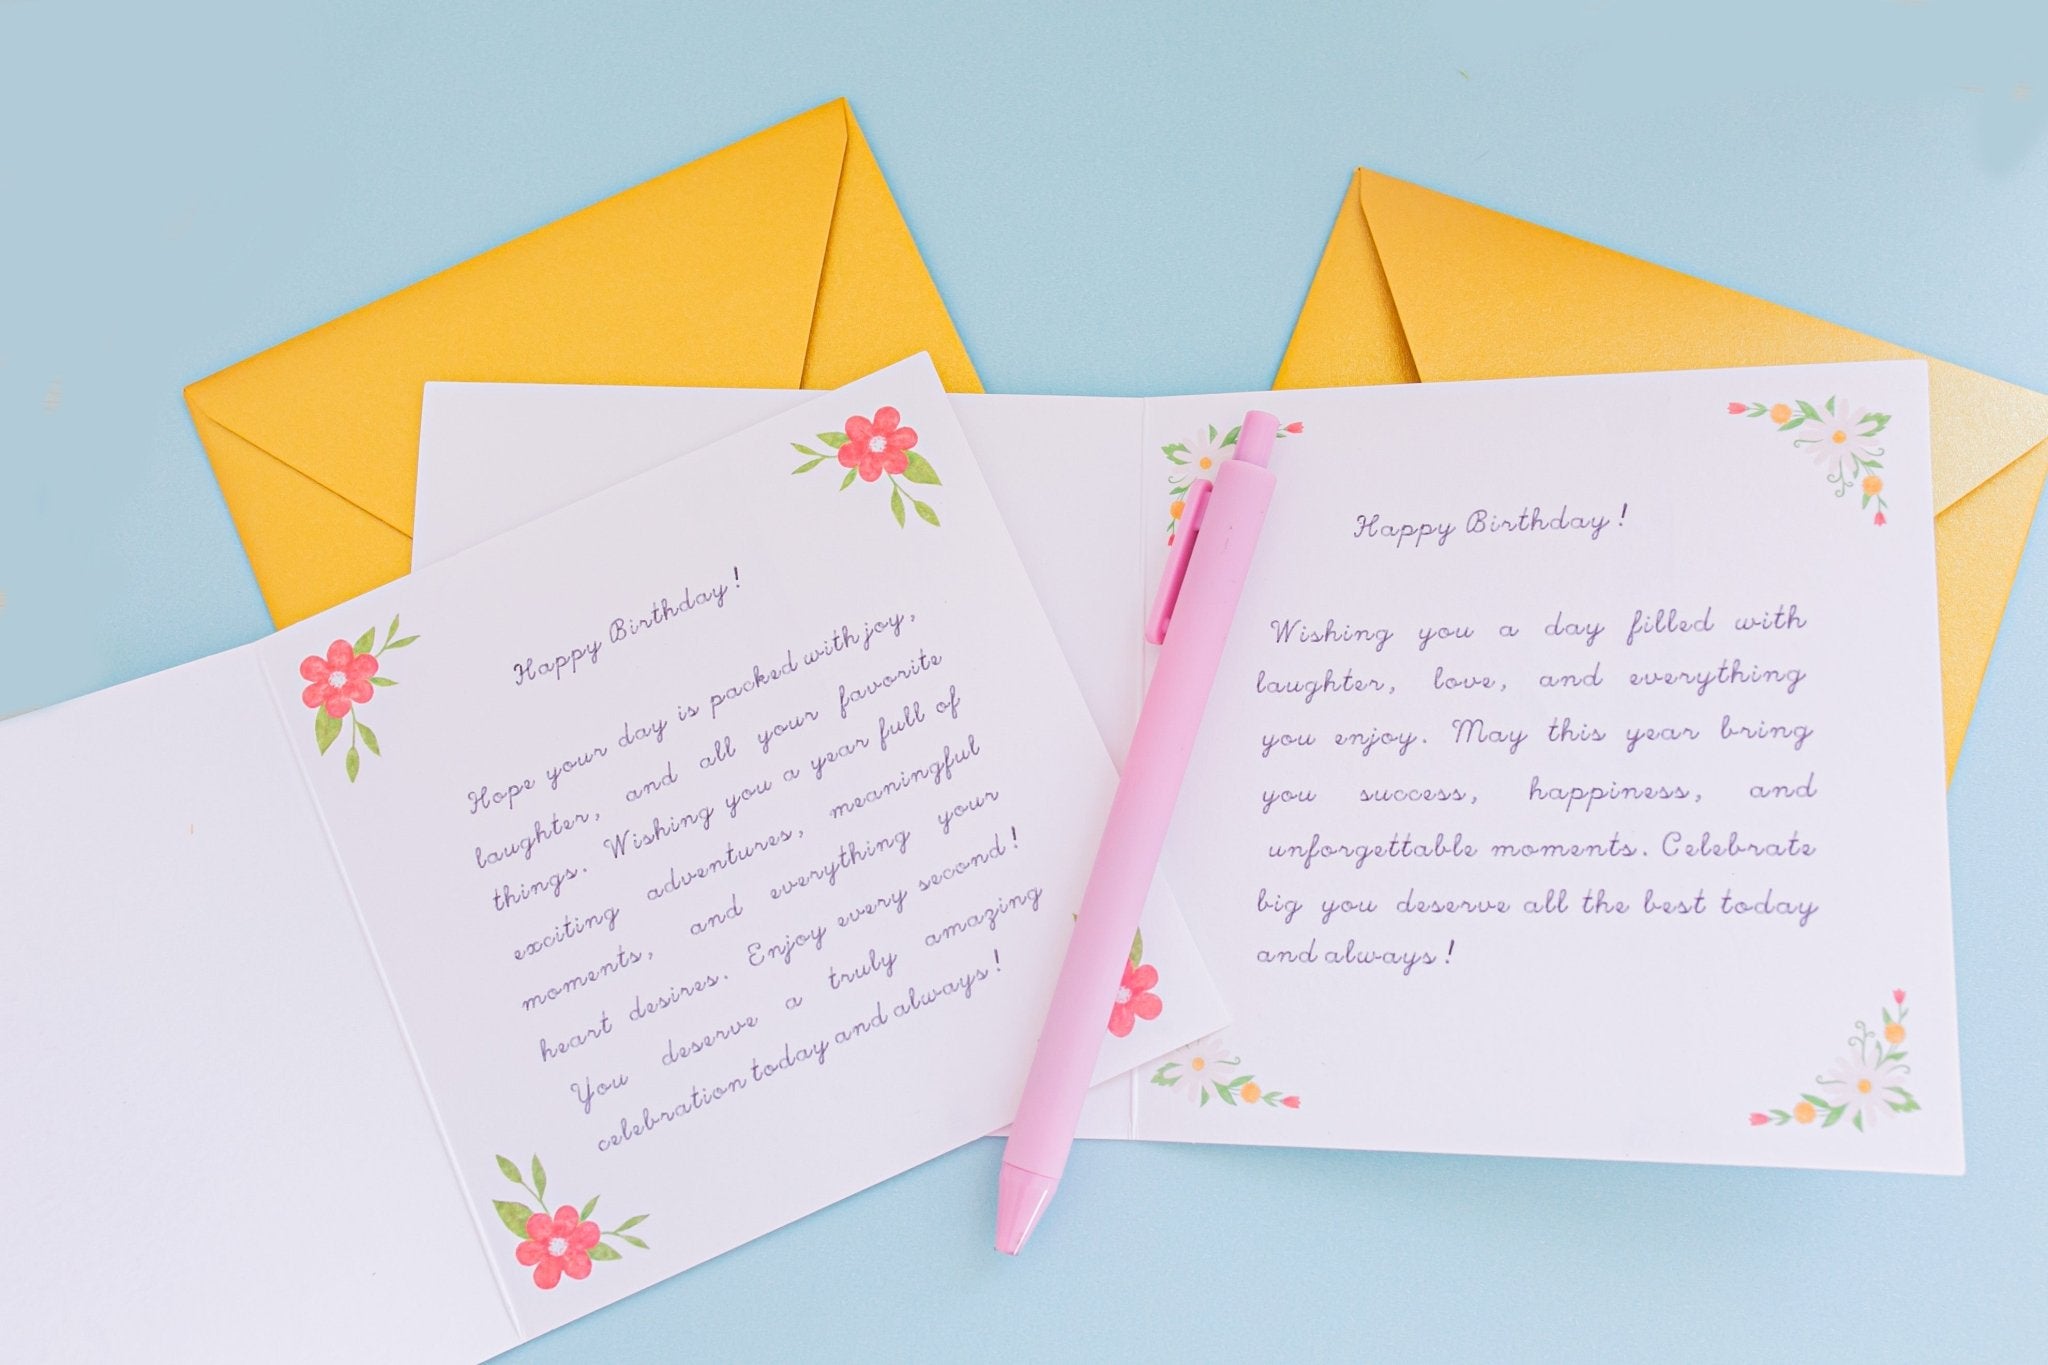 Happy Birthday!
Hope your day is packed with joy,
laughter, and all your favorite
things. Wishing you a year full of
exciting adventures, meaningful
moments, and everything your
heart desires. Enjoy every second!
You deserve a truly amazing
celebration today and always!
Happy Birthday!
Wishing you a day filled with
laughter, love, and everything
you enjoy. May this year bring
you success, happiness, and
unforgettable moments. Celebrate
big you deserve all the best today
and always!